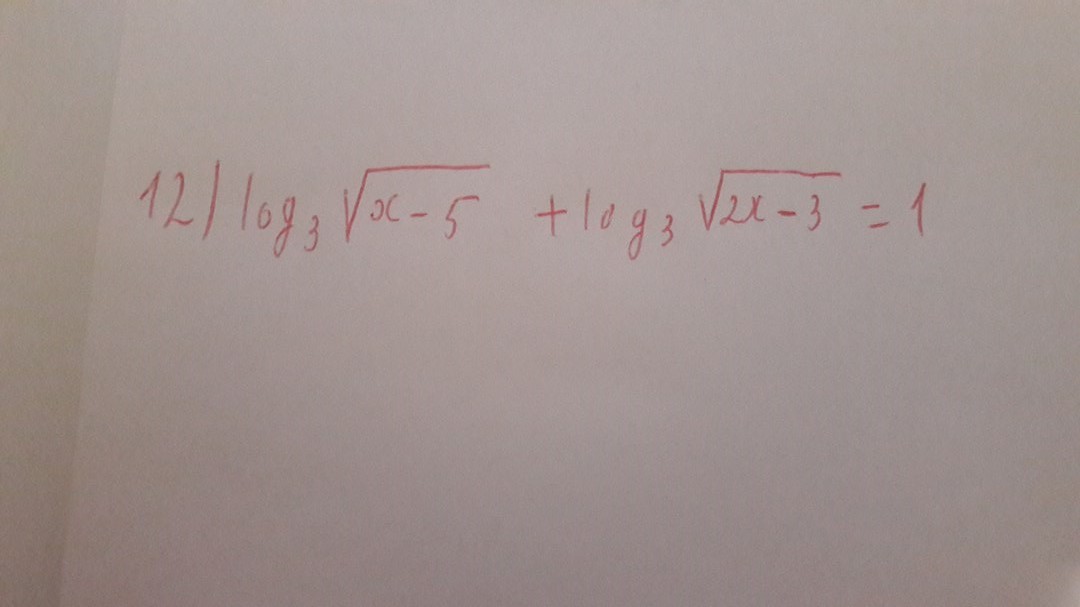 12) log₃ √(x-5) + log₃ √(2x-3) = 1